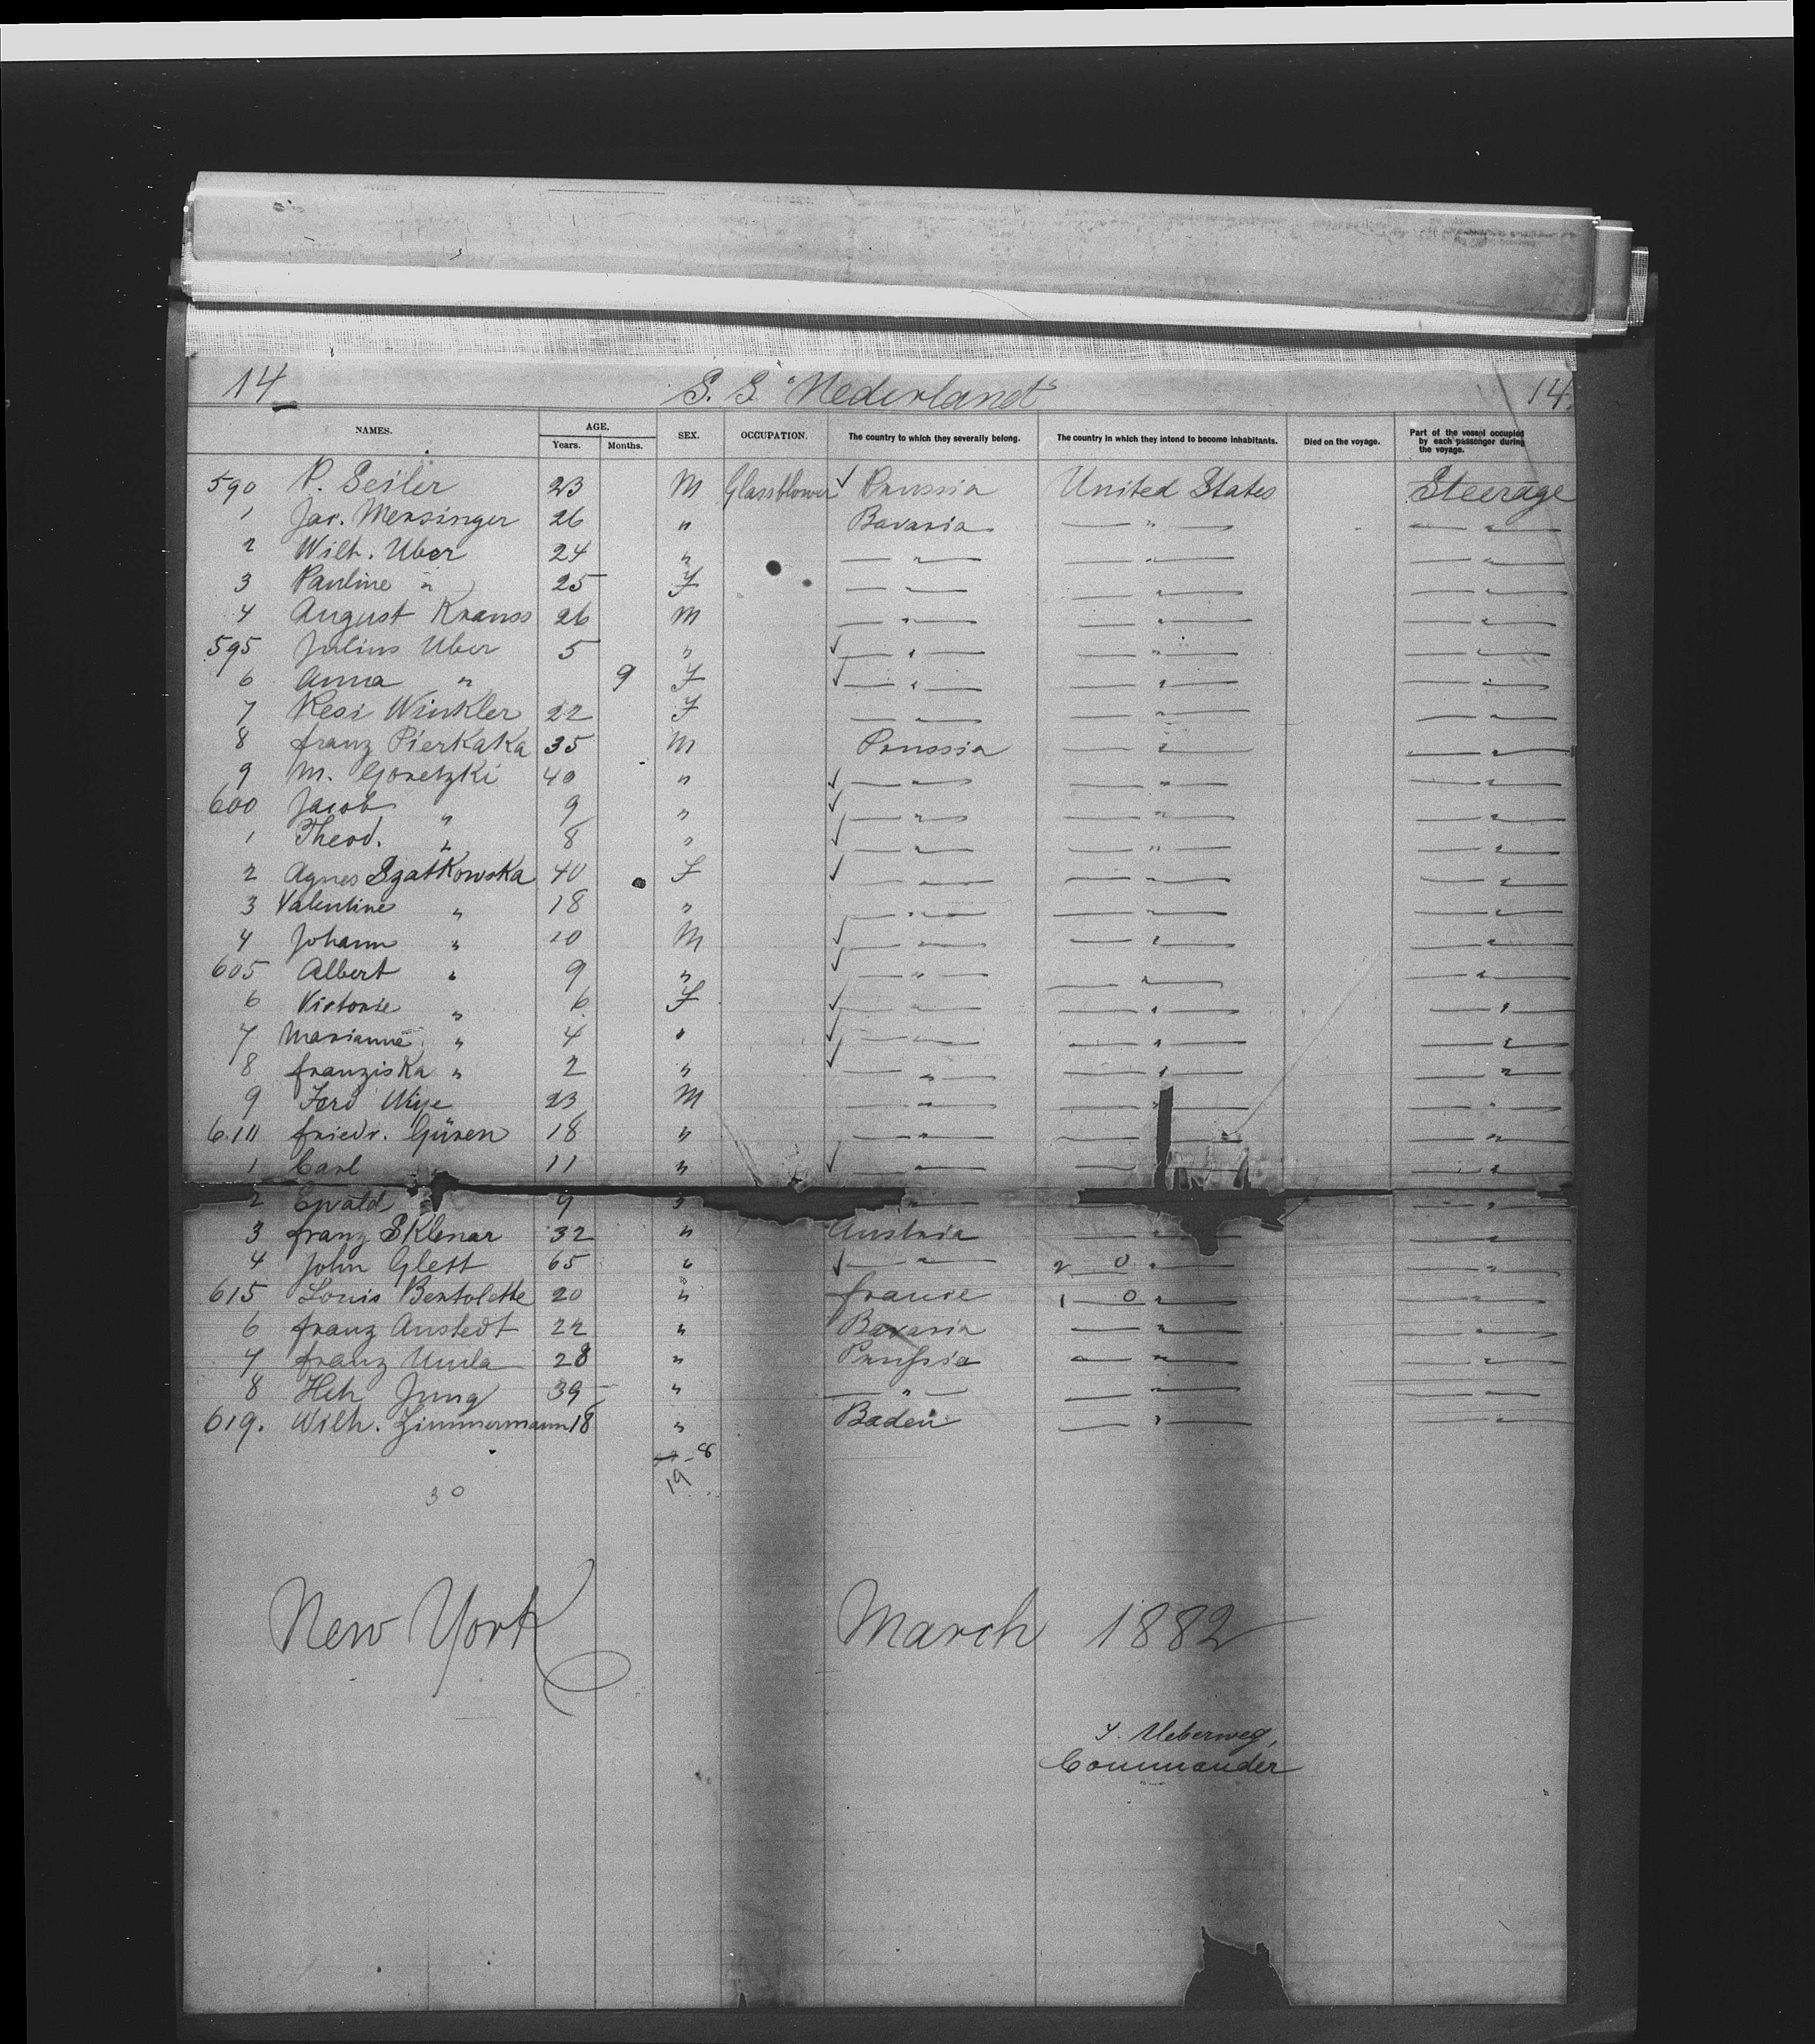 14 S. S. "Nederland" 14.
NAMES. AGE. Years. Months. SEX. OCCUPATION. The country to which they severally belong. The country in which they intend to become inhabitants. Died on the voyage. Part of the vessel occupied by each passenger during the voyage.
590 P. Seiler 23 M Glassblower ✓ Prussia United States Steerage
1 Jac. Mensinger 26 " Bavaria — " — — " —
2 Wilh. Uber 24 " — " — — " — — " —
3 Pauline " 25 F — " — — " — — " —
4 August Krauss 26 M — " — — " — — " —
595 Julius Uber 5 " ✓ — " — — " — — " —
6 Anna " 9 F ✓ — " — — " — — " —
7 Resi Winkler 22 F — " — — " — — " —
8 franz Pierkaka 35 M Prussia — " — — " —
9 M. Goretzki 40 " ✓ — " — — " — — " —
600 Jacob " 9 " ✓ — " — — " — — " —
1 Theod. " 8 " ✓ — " — — " — — " —
2 Agnes Szatkowska 40 F ✓ — " — — " — — " —
3 Valentine " 18 " — " — — " — — " —
4 Johann " 10 M ✓ — " — — " — — " —
605 Albert " 9 " ✓ — " — — " — — " —
6 Victorie " 6 F ✓ — " — — " — — " —
7 Marianne " 4 " ✓ — " — — " — — " —
8 franziska " 2 " ✓ — " — — " — — " —
9 Ferd 23 M — " — — " — — " —
610 friedr. Güren 18 " — " — — " — — " —
1 Carl " 11 " ✓ — " — — " — — " —
2 Ewald " 9 " " — — " —
3 franz Sklenar 32 " Austria — " — — " —
4 John Glett 65 " ✓ — " — 2 0 " — — " —
615 Louis Bertolette 20 " france 1 0 " — — " —
6 franz Anstedt 22 " Bavaria — " — — " —
7 franz Umla 28 " Prussia — " — — " —
8 Hch Jung 39 " — " — — " — — " —
619. Wilh. Zimmermann 18 " Baden — " — — " —
8
19
30
New York March 1882
Ueberweg,
Commander